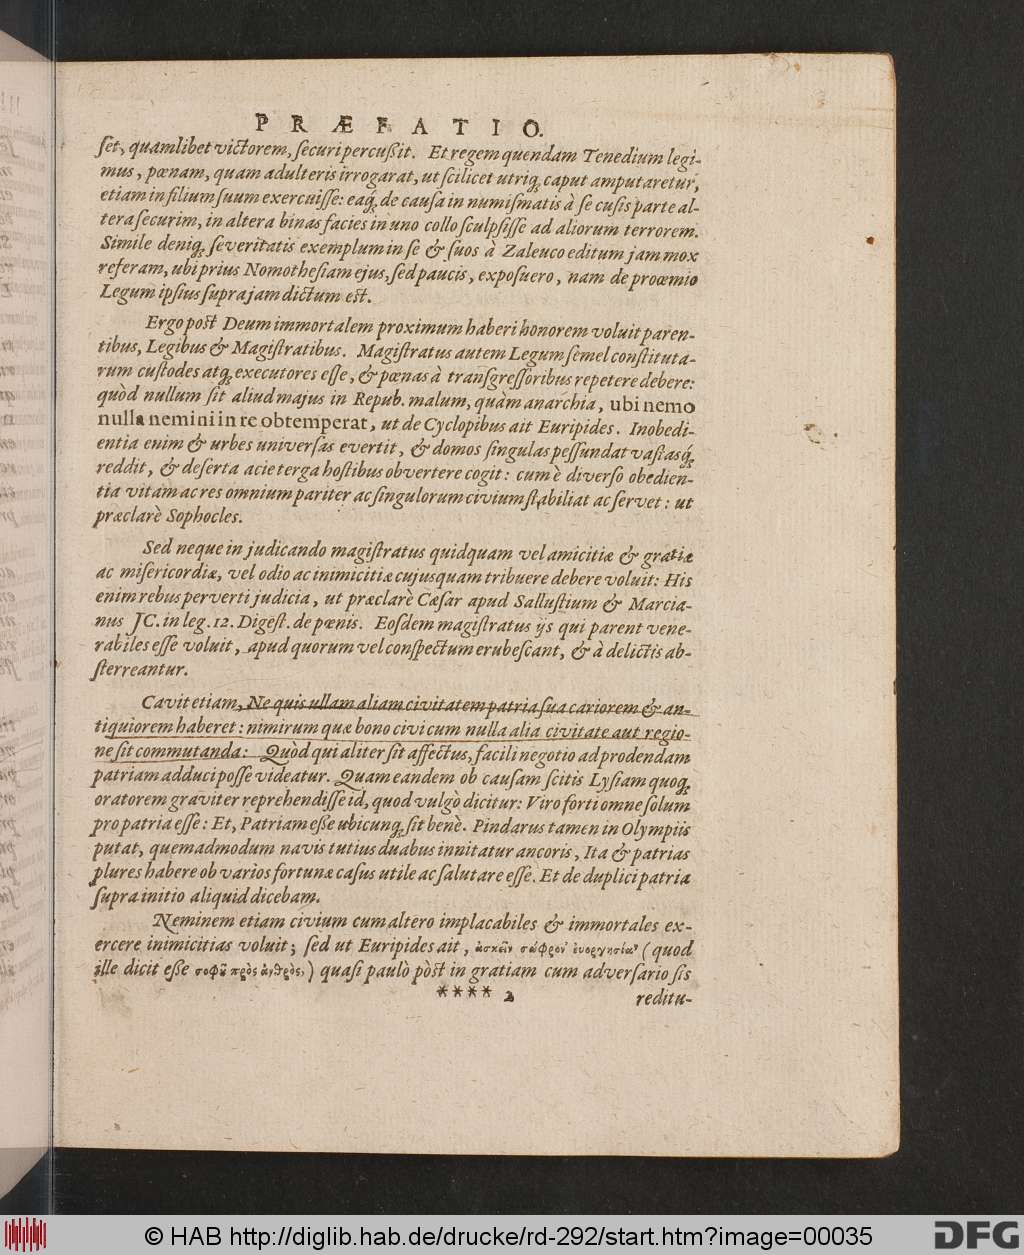 PRÆFATIO.
ſet, quamlibet victorem, ſecuri percußit. Et regem quendam Tenedium legi-
mus, pœnam, quam adulteris irrogarat, ut ſcilicet utriq; caput amputaretur,
etiam in filium ſuum exercuiſſe: eaq́; de cauſa in numiſmatis à ſe cuſis parte al-
tera ſecurim, in altera binas facies in uno collo ſculpſiſſe ad aliorum terrorem.
Simile deniq; ſeveritatis exemplum in ſe & ſuos à Zaleuco editum jam mox
referam, ubi prius Nomotheſiam ejus, ſed paucis, expoſuero, nam de proœmio
Legum ipſius ſupra jam dictum eſt.
Ergo poſt Deum immortalem proximum haberi honorem voluit paren-
tibus, Legibus & Magiſtratibus. Magiſtratus autem Legum ſemel conſtituta-
rum cuſtodes atq; executores eſſe, & pœnas à transgreſſoribus repetere debere:
quòd nullum ſit aliud majus in Repub. malum, quàm anarchia, ubi nemo
nulla nemini in re obtemperat, ut de Cyclopibus ait Euripides. Inobedi-
entia enim & urbes univerſas evertit, & domos ſingulas peſſundat vaſtasq́;
reddit, & deſerta acie terga hoſtibus obvertere cogit: cum è diverſo obedien-
tia vitam ac res omnium pariter ac ſingulorum civium ſtabiliat ac ſervet: ut
præclarè Sophocles.
Sed neque in judicando magiſtratus quidquam vel amicitiæ & gratiæ
ac miſericordiæ, vel odio ac inimicitiæ cujusquam tribuere debere voluit: His
enim rebus perverti judicia, ut præclarè Cæſar apud Salluſtium & Marcia-
nus JC. in leg. 12. Digeſt. de pœnis. Eosdem magiſtratus ijs qui parent vene-
rabiles eſſe voluit, apud quorum vel conſpectum erubeſcant, & à delictis ab-
ſterreantur.
Cavit etiam, Ne quis ullam aliam civitatem patria ſua cariorem & an-
tiquiorem haberet: nimirum quæ bono civi cum nulla alia civitate aut regio-
ne ſit commutanda: Quòd qui aliter ſit affectus, facili negotio ad prodendam
patriam adduci poſſe videatur. Quam eandem ob cauſam ſcitis Lyſiam quoq;
oratorem graviter reprehendiſſe id, quod vulgò dicitur: Viro forti omne ſolum
pro patria eſſe: Et, Patriam eße ubicunq; ſit benè. Pindarus tamen in Olympiis
putat, quemadmodum navis tutius duabus innitatur ancoris, Ita & patrias
plures habere ob varios fortunæ caſus utile ac ſalutare eſſe. Et de duplici patria
ſupra initio aliquid dicebam.
Neminem etiam civium cum altero implacabiles & immortales ex-
ercere inimicitias voluit; ſed ut Euripides ait, ἀσκεῖν (quod
ille dicit eße σοφοῦ πρὸς ἀνδρὸς,) quaſi paulò pòſt in gratiam cum adverſario ſis
**** 2 reditu-
© HAB http://diglib.hab.de/drucke/rd-292/start.htm?image=00035
DFG